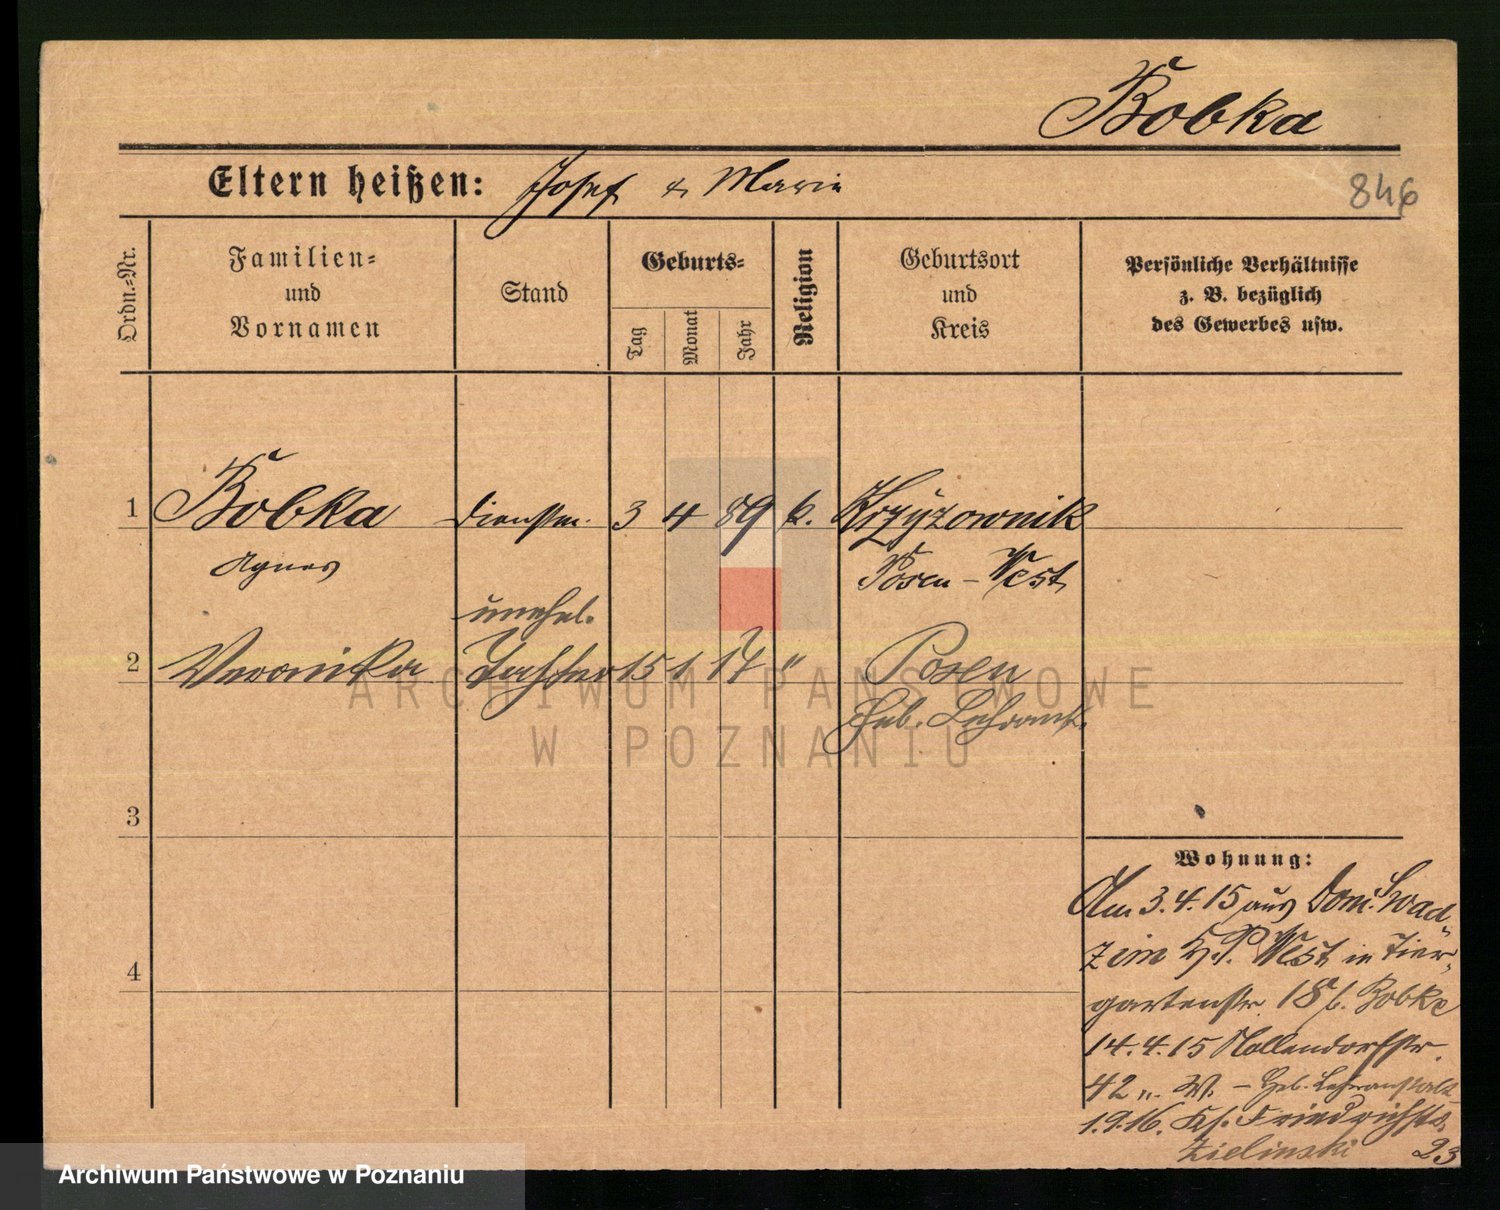 Bobka
Eltern heißen: Josef & Marie
846
Ordn.-Nr.
Familien-
und
Vornamen
Stand
Geburts-
Tag
Monat
Jahr
Religion
Geburtsort
und
Kreis
Persönliche Verhältnisse
z. B. bezüglich
des Gewerbes usw.
1 Bobka Dienstm. 3 4 89 k. Krzyżownik
Agnes Posen-West
unehel.
2 Veronika Tochter 15 1 14 " Posen
Heb. Lehranst.
3
4
Wohnung:
Am 3.4.15 aus Dom. Swad
zim Kr. P. West in Tier-
gartenstr. 18 b. Bobke
14.4.15 Nollendorfstr.
42 W. - Heb. Lehranstalt
1.9.16. Friedrichstr.
Zielinski 23
ARCHIWUM PAŃSTWOWE
W POZNANIU
Archiwum Państwowe w Poznaniu